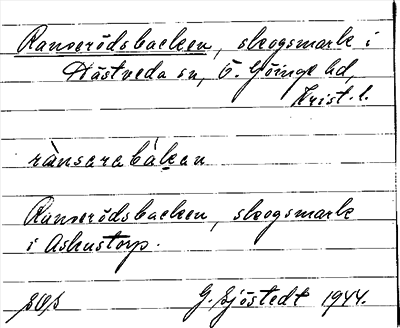 Ranserödsbacken, skogsmark i
Hästveda sn, Ö. Göinge hd,
Krist. l.
rànsarabákan
Ranserödsbacken, skogsmark
i Askustorp.
G. Sjöstedt 1944.